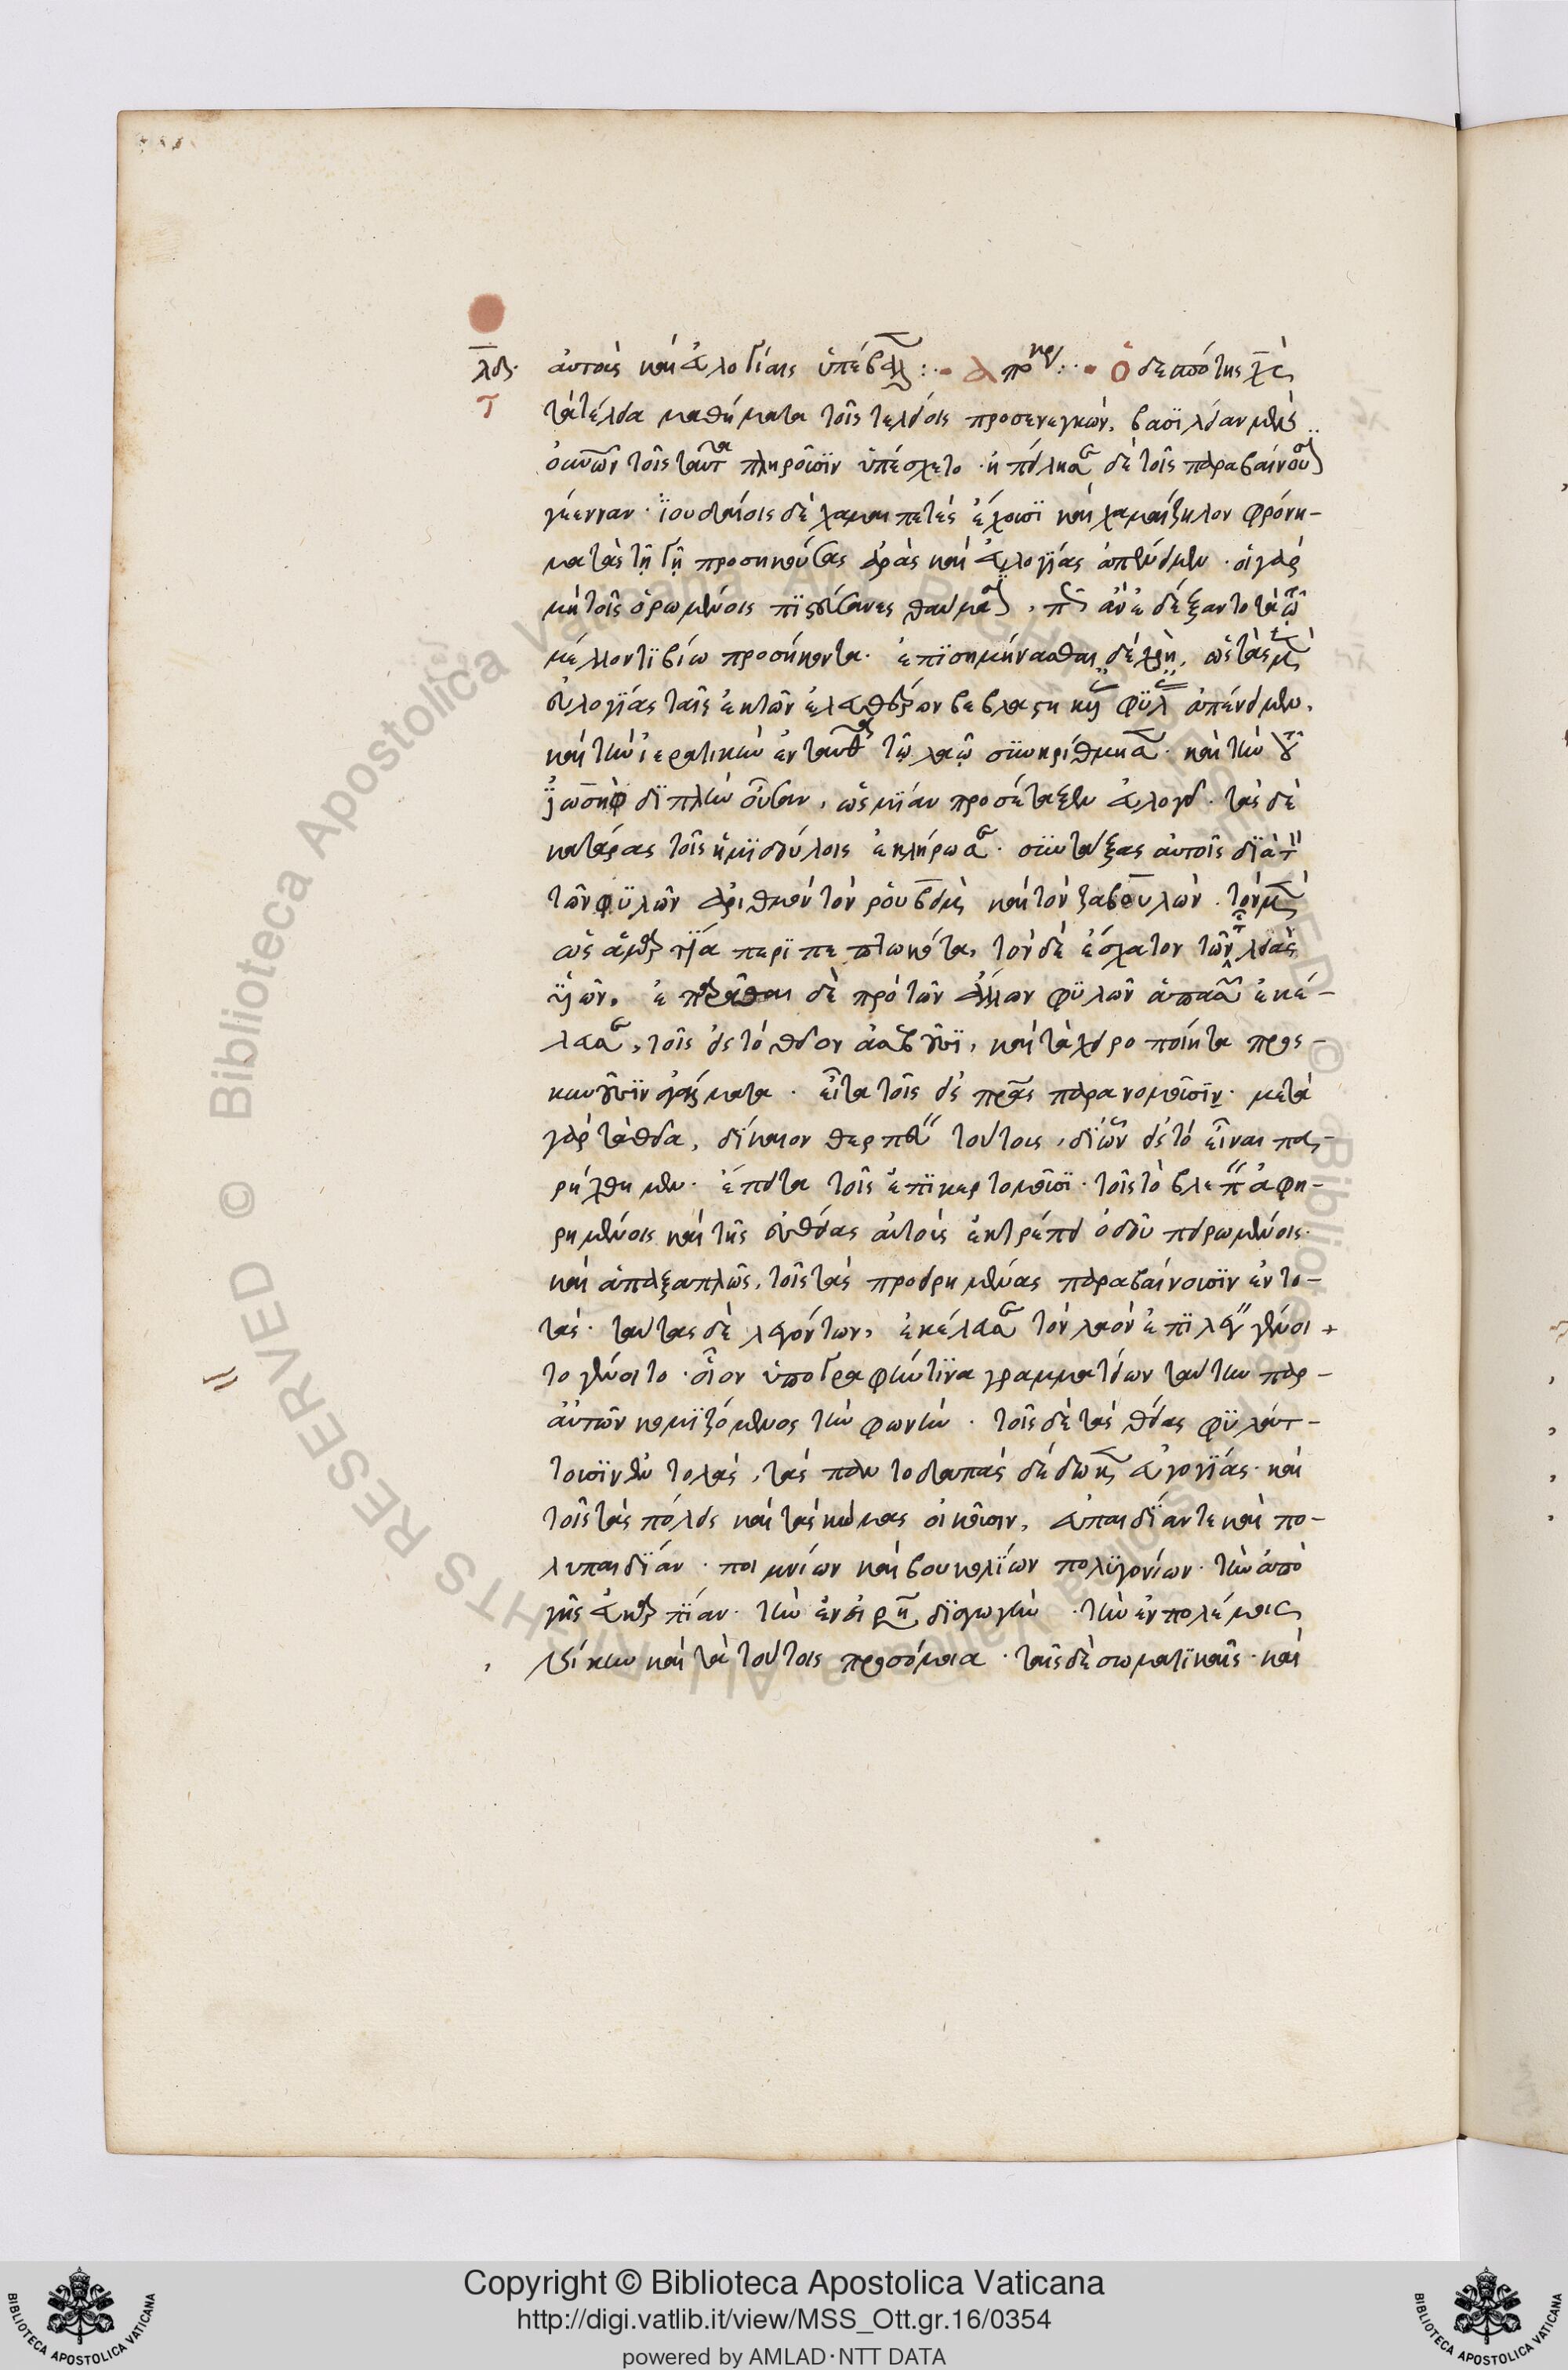 λδ. αὐτοὺς καὶ εὐλογίαις ὑπέβαλε :· ἀπόκρ :· Ὁ δεσπότης χς
τ τὰ τέλεια μαθήματα τοῖς τελείοις προσενεγκὼν, βασιλείαν μὲν
οὐνῶν τοῖς ταῦτα πληροῦσιν ὑπέσχετο · ἠπείλησε δὲ τοῖς παραβαίνουσι
γέενναν · ἰουδαίοις δὲ χαμαιπετὲς ἔχουσι καὶ χαμαίζηλον φρόνη-
μα τὰς τῆ γῆ προσηκούσας ἀρὰς καὶ εὐλογίας ἀπένειμεν · οἱ γὰρ
μὴ τοῖς ὁρωμένοις πιστεύσαντες θαύμασι, πῶς ἂν ἐδέξαντο τὰ τῶ
μέλλοντι βίω προσήκοντα · ἐπισημήνασθαι δὲ χρὴ, ὡς τὰς μὲν
εὐλογίας ταῖς ἐκ τῶν ἐλευθέρων βεβλαστηκυίαις φυλαῖς ἀπένειμεν.
καὶ τὴν ἱερατικὴν ἐνταῦθα τῶ λαῶ συνηρίθμησε · καὶ τὴν τοῦ
ἰωσὴφ διπλῆν οὖσαν, ὡς μίαν προσέταξεν εὐλογεῖν · τὰς δὲ
κατάρας τοῖς ἡμιδούλοις ἐκλήρωσε · συντάξας αὐτοῖς διὰ τὸν
τῶν φυλῶν ἀριθμὸν τὸν ρουβεὶμ καὶ τὸν ζαβουλών · τὸν μὲν
ὡς ἁμαρτία περιπεπτωκότα, τὸν δὲ ἔσχατον τῶν τῆς λείας
υἱῶν. ἐπαρᾶσθαι δὲ πρὸ τῶν ἄλλων φυλῶν ἁπασῶν ἐκέ-
λευσε, τοῖς εἰς τὸ θεῖον ἀσεβοῦσι, καὶ τὰ χειροποίητα προσ-
κυνοῦσιν ὁράματα · εἶτα τοῖς εἰς πρας παρανομοῦσιν · μετὰ
γὰρ τὰ θεῖα, δίκαιον θεραπεύειν τούτους, δι' ὧν εἰς τὸ εἶναι πα-
ρήχθημεν · ἔπειτα τοῖς ἐπικερτομοῦσι · τοῖς τὸ βλέπειν ἀφη-
ρημένοις καὶ τῆς εὐθείας αὐτοὺς ἐκτρέπειν ὁδοῦ πειρωμένοις ·
καὶ ἁπαξαπλῶς, τοῖς τὰς προειρημένας παραβαίνουσιν ἐντο-
λάς · ταύτας δὲ λεγόντων, ἐκέλευσε τὸν λαὸν ἐπιλέγειν γένοι +
το γένοιτο · οἷον ὑπογραφήν τινα γραμματείων ταύτην παρ-
αὐτῶν κομιζόμενος τὴν φωνήν · τοῖς δὲ τὰς θείας φυλάτ-
τουσιν ἐντολὰς, τὰς παντοδαπὰς δέδωκεν εὐλογίας · καὶ
τοῖς τὰς πόλεις καὶ τὰς κώμας οἰκοῦσιν, εὐπαιδίαν τε καὶ πο-
λυπαιδίαν · ποιμνίων καὶ βουκολίων πολυγονίαν · τὴν ἀπὸ
γῆς εὐκαρπίαν · τὴν ἐν εἰρήνη διαγωγὴν · τὴν ἐν πολέμοις
νίκην καὶ τὰ τούτοις προσόμοια · ταῖς δὲ σωματικαῖς · καὶ
Copyright © Biblioteca Apostolica Vaticana
http://digi.vatlib.it/view/MSS_Ott.gr.16/0354
powered by AMLAD·NTT DATA